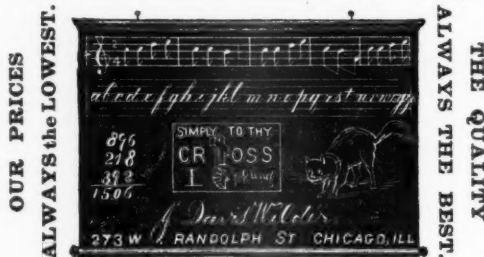 OUR PRICES
ALWAYS the LOWEST.
2
4
abcdefghijklmnopqrstuvwxyz
896
218
392
1506
SIMPLY TO THY
CR OSS
I
J. Davis Wilder
273 W. RANDOLPH ST CHICAGO, ILL
THE QUALITY
ALWAYS THE BEST.